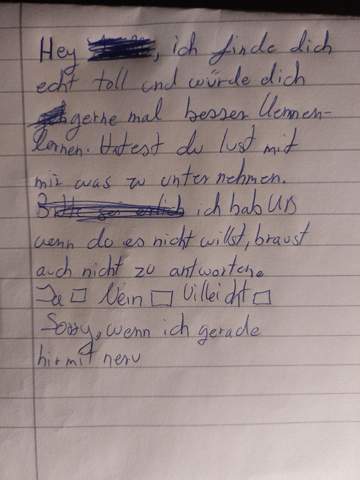 Hey , ich finde dich
echt toll und würde dich
gerne mal besser kennen-
lernen. Hätest du lust mit
mir was zu unternehmen.
ich hab
wenn do es nicht willst, braust
auch nicht zu antworten.
Ja □ Nein □ Villeicht □
Sorry, wenn ich gerade
hirmit nerv